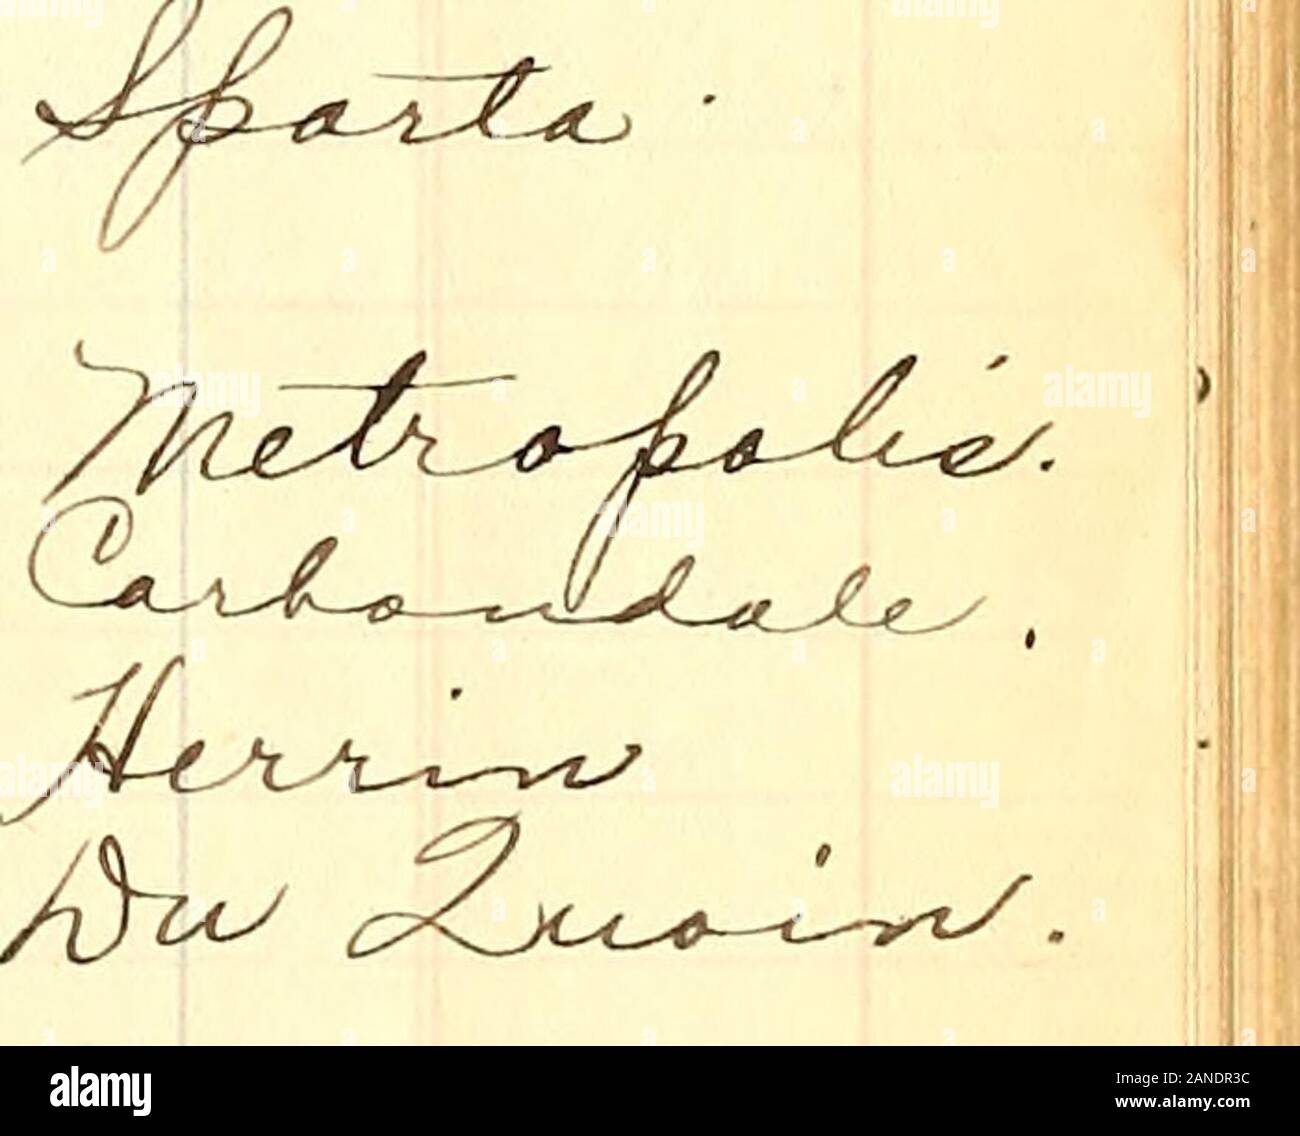 Sparta.
Metropolis.
Carbondale.
Herrin
Du Quoin.
alamy
Image ID: 2ANDR3C
www.alamy.com